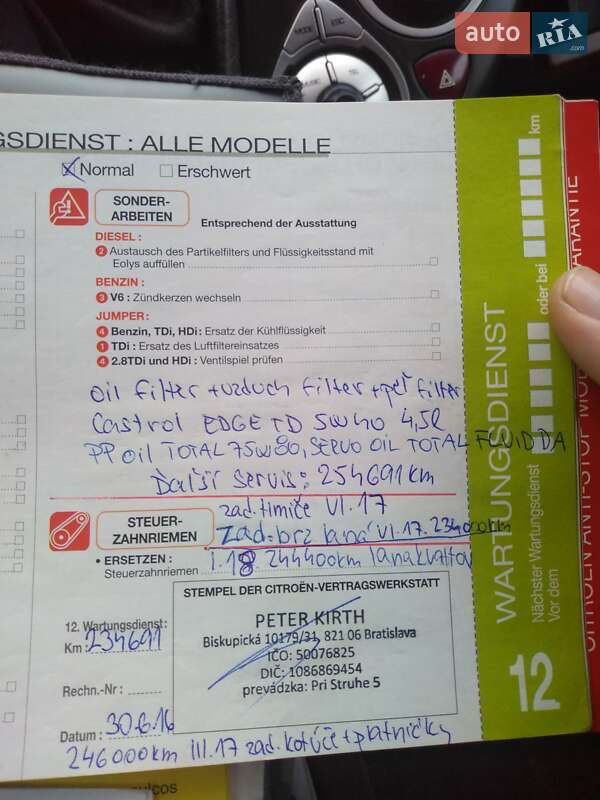 auto RIA.com
MODE
ESC
GSDIENST : ALLE MODELLE
Normal Erschwert
SONDER-
ARBEITEN
Entsprechend der Ausstattung
DIESEL :
2 Austausch des Partikelfilters und Flüssigkeitsstand mit
Eolys auffüllen
BENZIN :
3 V6 : Zündkerzen wechseln
JUMPER :
4 Benzin, TDi, HDi : Ersatz der Kühlflüssigkeit
1 TDi : Ersatz des Luftfiltereinsatzes
4 2.8TDi und HDi : Ventilspiel prüfen
oil filter + vzduch filter + peľ filter
Castrol EDGE TD 5W40 4,5l
PP oil TOTAL 75W80, SERVO OIL TOTAL FLUID DA
Ďalší servis: 254691km
STEUER-
ZAHNRIEMEN
zad. tlmiče VI.17
zad. brz. laná VI.17. 234000km
• ERSETZEN :
Steuerzahnriemen
I.18 244400km
STEMPEL DER CITROËN-VERTRAGSWERKSTATT
PETER KIRTH
Biskupická 10179/31, 821 06 Bratislava
IČO: 50076825
DIČ: 1086869454
prevádzka: Pri Struhe 5
12. Wartungsdienst:
Km : 234691
Rechn.-Nr :
Datum : 30.6.16
246000km III.17 zad. kotúče + platničky
WARTUNGSDIENST
12
Nächster Wartungsdienst
Vor dem
oder bei
km